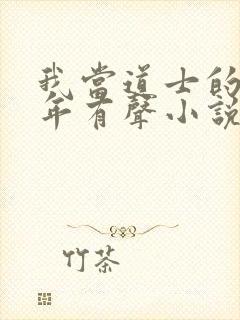 我當道士的
年有聲小說
竹茶